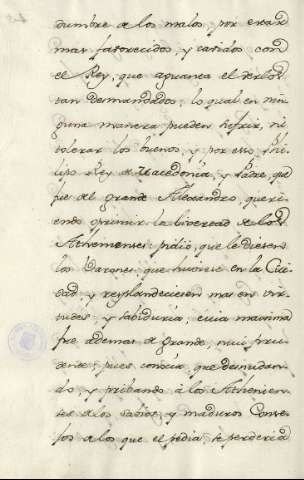 dumbre a los malos, por estar
mas faborecidos, y validos con
el Rey, que aguanta el verlos
tan desmandados, lo qual en nin
guna manera pueden sufrir, ni
tolerar los buenos, y por esso Phe
lipo Rey de Macedonia, y Padre que
fue del grande Alexandro, queri
endo oprimir la libertad de los
Athenienses, pidió, que le diesen
los Varones que huviese en la Ciu
dad, y resplandeciesen mas en vir
tudes, y sabiduria, cuia maxima
fue ademas de grande, mui pru
dente, pues conocia, que desnudan
do, y pribando à los Athenien
ses de los sabios, y maduros Conse
jos de los que el pedia, se perderia